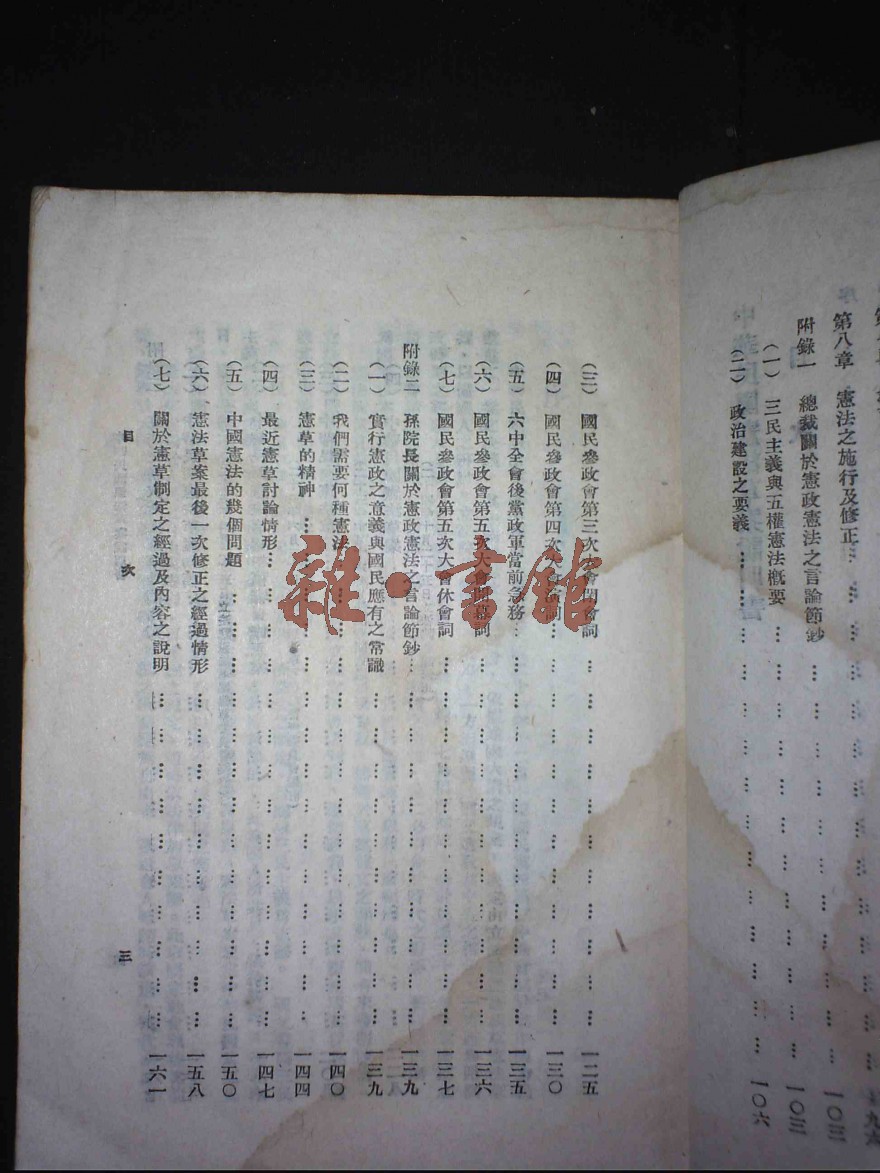 第八章 憲法之施行及修正 … 一〇三
附錄一 總裁關於憲政憲法之言論節鈔 … 一〇三
(一) 三民主義與五權憲法概要
(二) 政治建設之要義 … 一〇六
(三) 國民參政會第三次大會開會詞 … 一二五
(四) 國民參政會第四次大會 … 一三〇
(五) 六中全會後黨政軍當前急務 … 一三五
(六) 國民參政會第五次大會開幕詞 … 一三六
(七) 國民參政會第五次大會休會詞 … 一三七
附錄二 孫院長關於憲政憲法之言論節鈔 … 一三九
(一) 實行憲政之意義與國民應有之常識 … 一三九
(二) 我們需要何種憲法 … 一四〇
(三) 憲草的精神 … 一四四
(四) 最近憲草討論情形 … 一四七
(五) 中國憲法的幾個問題 … 一五〇
(六) 憲法草案最後一次修正之經過情形 … 一五八
(七) 關於憲草制定之經過及內容之說明 … 一六一
目 次
三
雜·書館